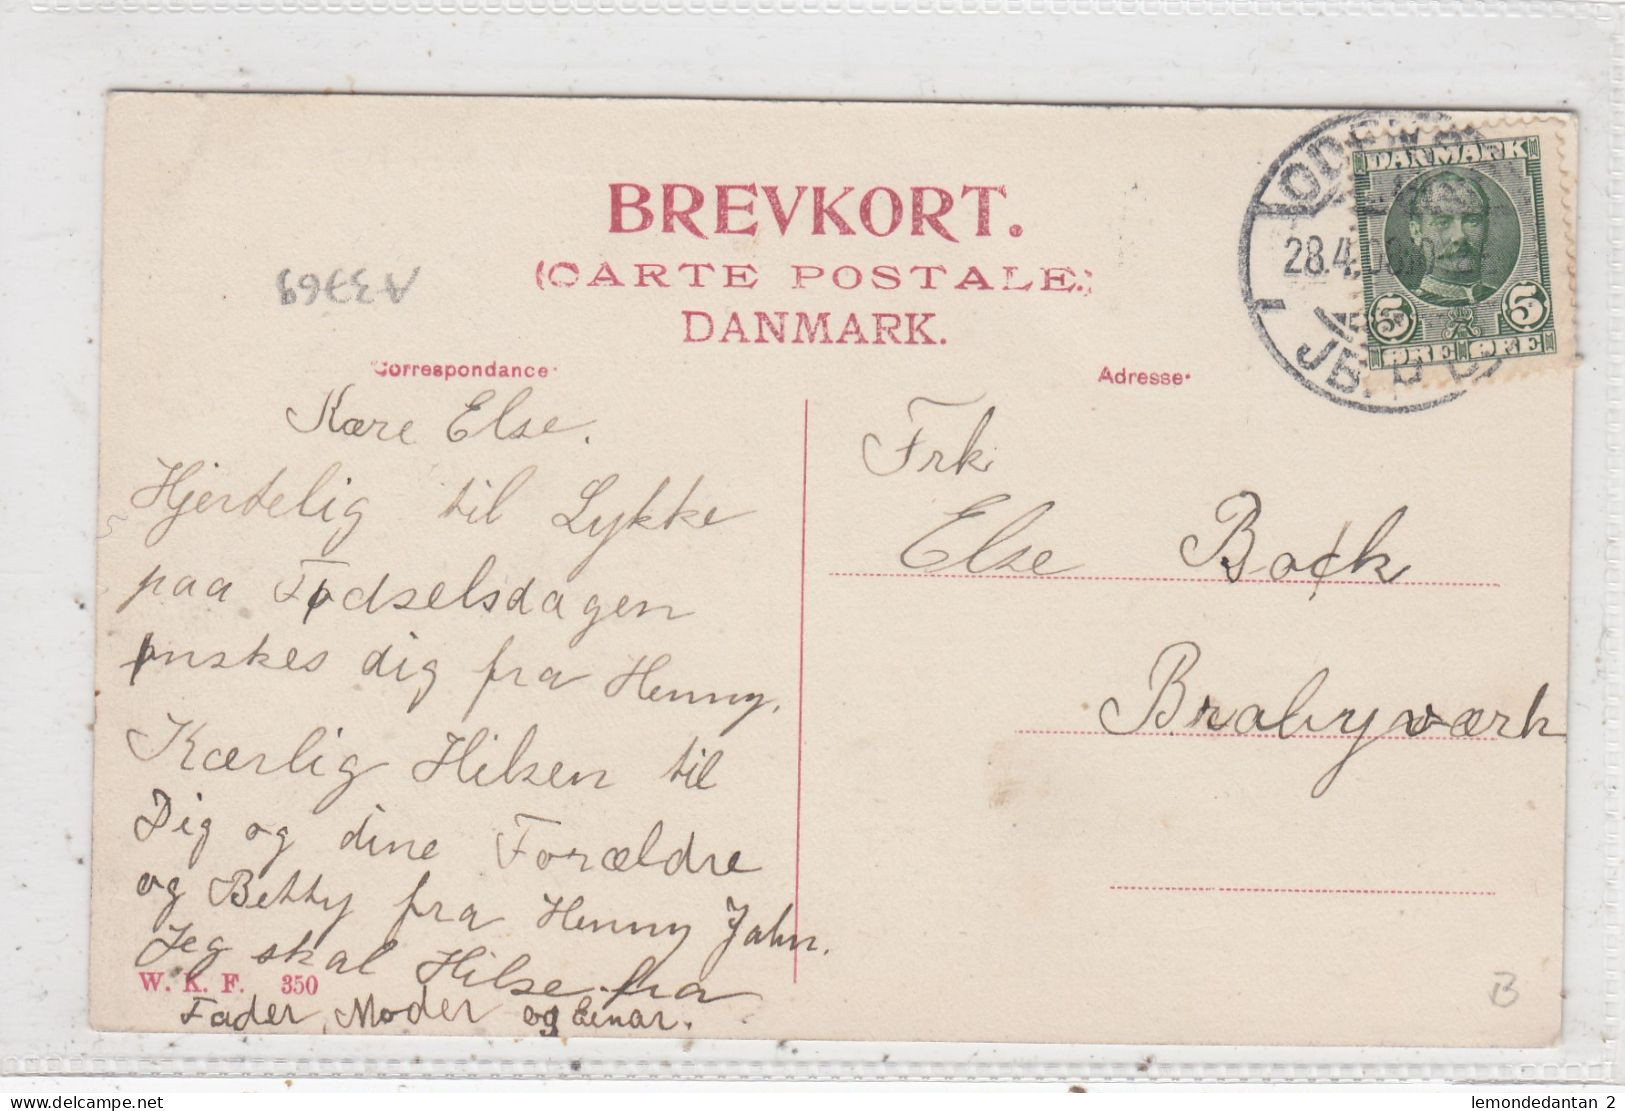 BREVKORT.
(CARTE POSTALE.)
DANMARK.
A 33769
Correspondance.
Kære Else.
Hjertelig til Lykke
paa Fødselsdagen
ønskes dig fra Henny.
Kærlig Hilsen til
Dig og dine Forældre
og Betty fra Henny Jahn.
Jeg skal Hilse fra
Fader, Moder og Einar.
W. K. F. 350
Adresse.
Frk.
Else Bock
Brobyværk
28.4.08
JB.
DANMARK
5 5
ØRE ØRE
B
www.delcampe.net
lemondedantan 2